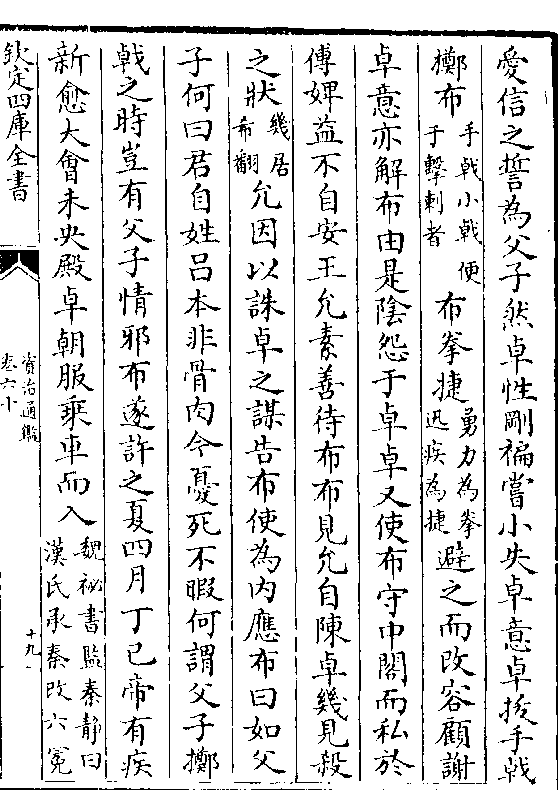 愛信之誓為父子然卓性剛褊嘗小失卓意卓拔手戟
擲布手戟小戟便于擊刺者布拳捷勇力為拳迅疾為捷避之而改容顧謝
卓意亦解布由是陰怨于卓卓又使布守中閤而私於
傅婢益不自安王允素善待布布見允自陳卓幾見殺
之狀幾居希翻允因以誅卓之謀告布使為内應布曰如父
子何曰君自姓吕本非骨肉今憂死不暇何謂父子擲
戟之時豈有父子情邪布遂許之夏四月丁巳帝有疾
新愈大會未央殿卓朝服乗車而入魏祕書監秦静曰漢氏承秦改六冕
欽定四庫全書
資治通鑑
卷六十
十九